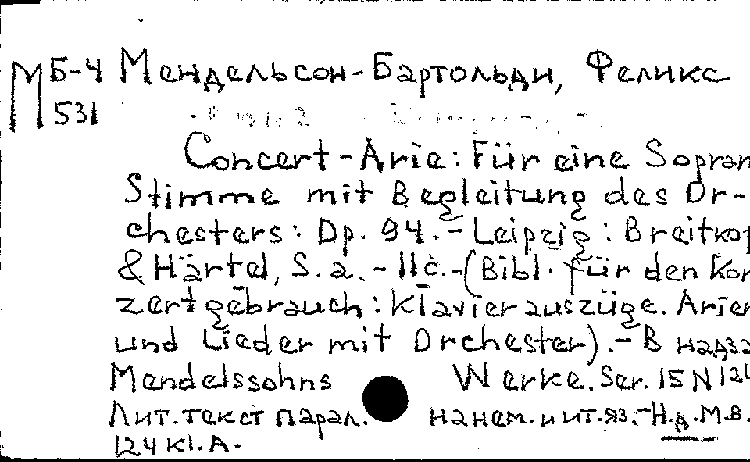 М Б-4 Мендельсон-Бартольди, Феликс
531
Concert-Arie: Für eine Sopran
Stimme mit Begleitung des Or-
chesters: Op. 94. - Leipzig: Breitkop
& Härtel, S. a. - 11 с. - (Bibl. für den Kon
zertgebrauch: Klavierauszüge. Arien
und Lieder mit Orchester). - В надза
Mendelssohns Werke. Ser. 15 N 121
Лит. текст парал. на нем. и ит. яз. - Н.д. М.В.
124 Kl. A.